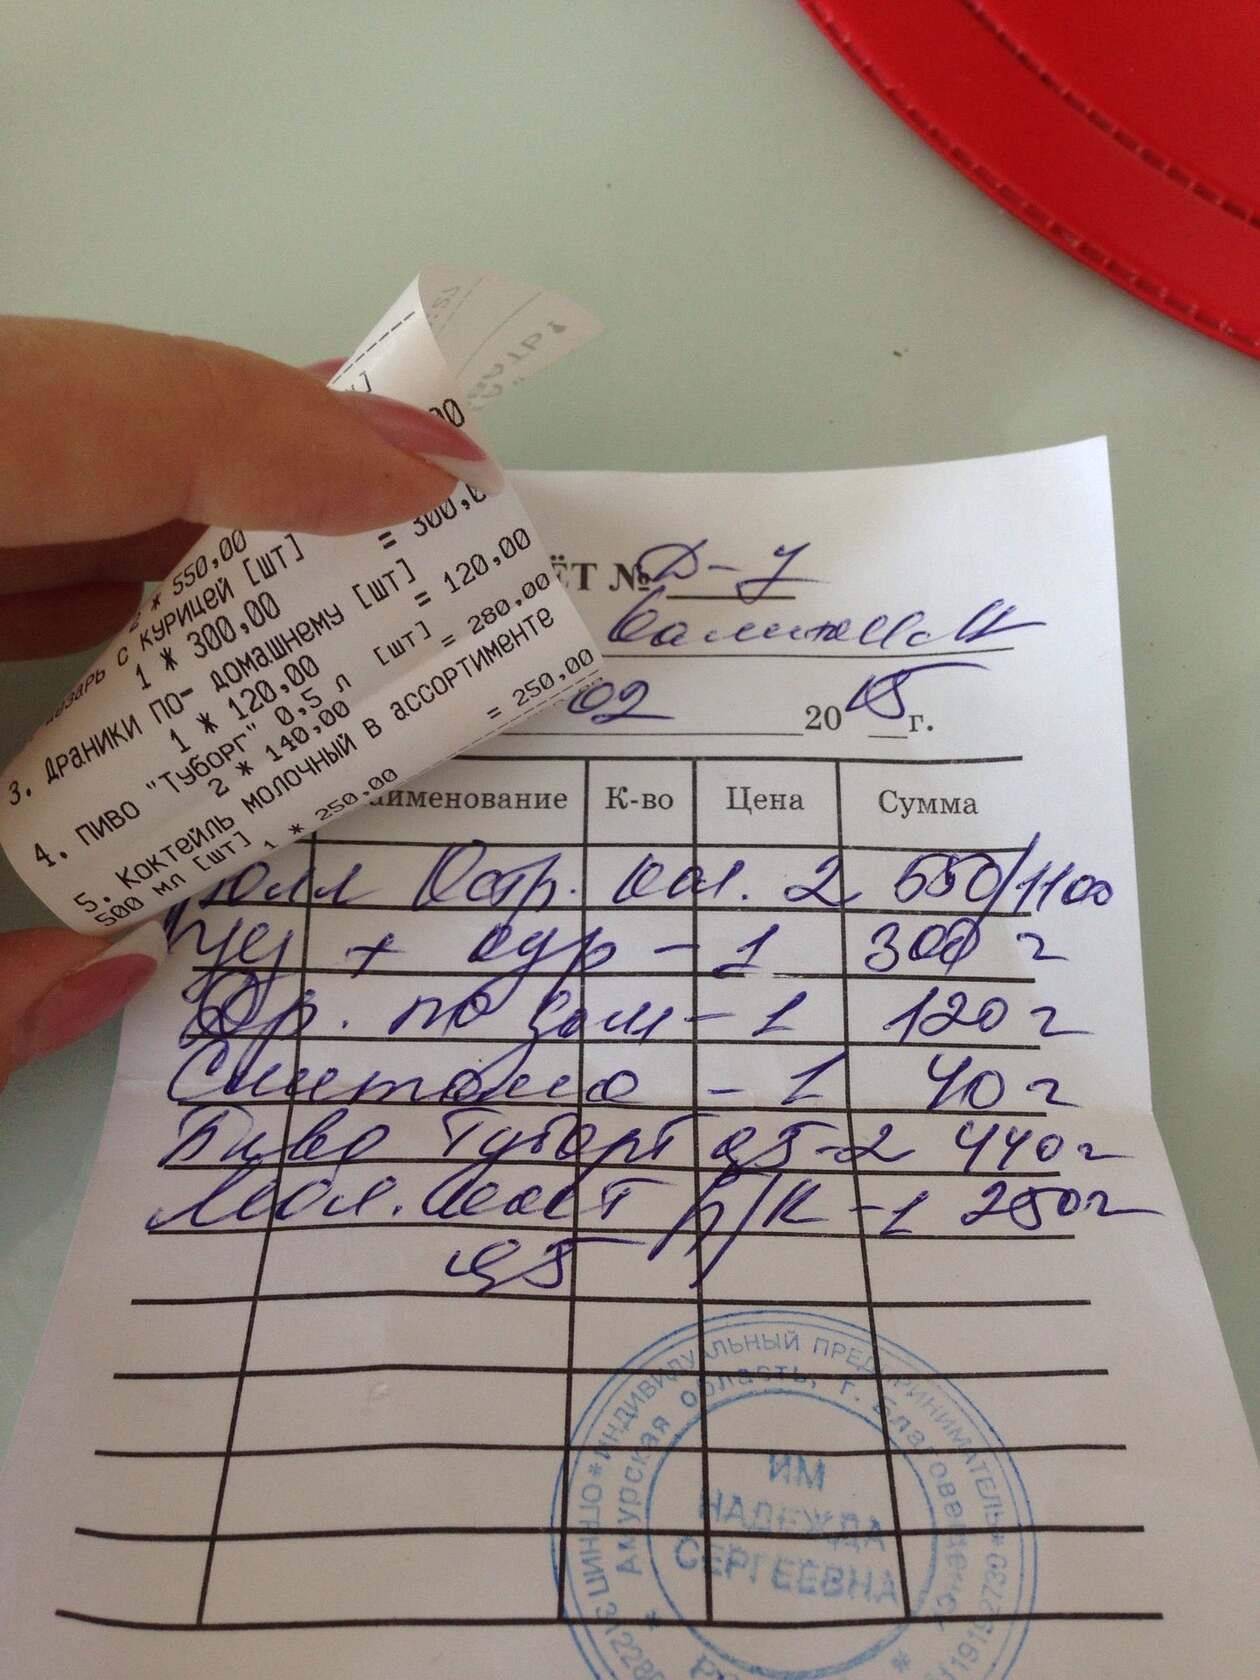 2 * 550,00
с курицей [шт]
1 * 300,00 = 300,0
3. Драники по- домашнему [шт]
1 * 120,00 = 120,00
4. Пиво "Туборг" 0,5 л [шт]
2 * 140,00 = 280,00
5. Коктейль молочный в ассортименте
500 мл [шт] 1 * 250,00 = 250,00
ЁТ № Д-7
02 2015 г.
аименование К-во Цена Сумма
Ролл Остр. 2 550/1100
Цез + кур - 1 300 г
Др. по дом - 1 120 г
Сметана - 1 40 г
Пиво Туборг 0,5-2 440 г
Мол. Кокт б/к - 1 250 г
0,5
ИНДИВИДУАЛЬНЫЙ ПРЕДПРИНИМАТЕЛЬ
Амурская область, г. Благовещенск
ИМ
НАДЕЖДА
СЕРГЕЕВНА